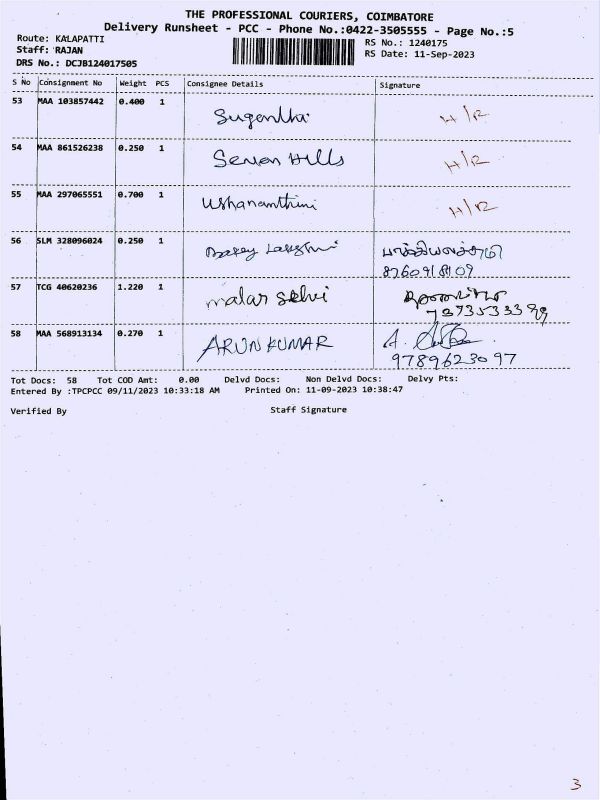 THE PROFESSIONAL COURIERS, COIMBATORE
Delivery Runsheet - PCC - Phone No.:0422-3505555 - Page No.:5
Route: KALAPATTI
Staff: RAJAN
DRS No.: DCJB124017505
RS No.: 1240175
RS Date: 11-Sep-2023
S No Consignment No Weight PCS Consignee Details Signature
53 MAA 103857442 0.400 1 Sugantha H/R
54 MAA 861526238 0.250 1 Seven Hills H/R
55 MAA 297065551 0.700 1 Ushananthini H/R
56 SLM 328096024 0.250 1
8760918109
57 TCG 40620236 1.220 1 malar selvi
7373533399
58 MAA 568913134 0.270 1 ARUN KUMAR A.
9789623097
Tot Docs: 58 Tot COD Amt: 0.00 Delvd Docs: Non Delvd Docs: Delvy Pts:
Entered By :TPCPCC 09/11/2023 10:33:18 AM Printed On: 11-09-2023 10:38:47
Verified By Staff Signature
3